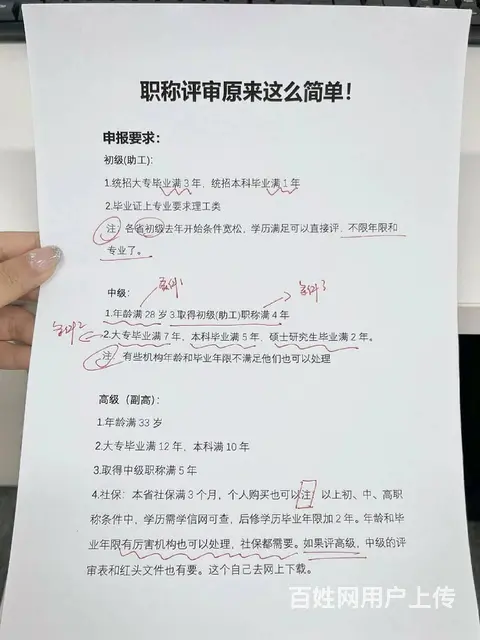 职称评审原来这么简单！
申报要求：
初级(助工)：
1.统招大专毕业满3年，统招本科毕业满1年
2.毕业证上专业要求理工类
注：各省初级去年开始条件宽松，学历满足可以直接评，不限年限和
专业了。
条件1
条件3
中级：
1.年龄满28岁 3.取得初级(助工)职称满4年
条件2
2.大专毕业满7年，本科毕业满5年，硕士研究生毕业满2年。
注：有些机构年龄和毕业年限不满足他们也可以处理
高级（副高）：
1.年龄满33岁
2.大专毕业满12年，本科满10年
3.取得中级职称满5年
4.社保：本省社保满3个月，个人购买也可以注：以上初、中、高职
称条件中，学历需学信网可查，后修学历毕业年限加2年。年龄和毕
业年限有厉害机构也可以处理，社保都需要。如果评高级，中级的评
审表和红头文件也有要。这个自己去网上下载。
百姓网用户上传